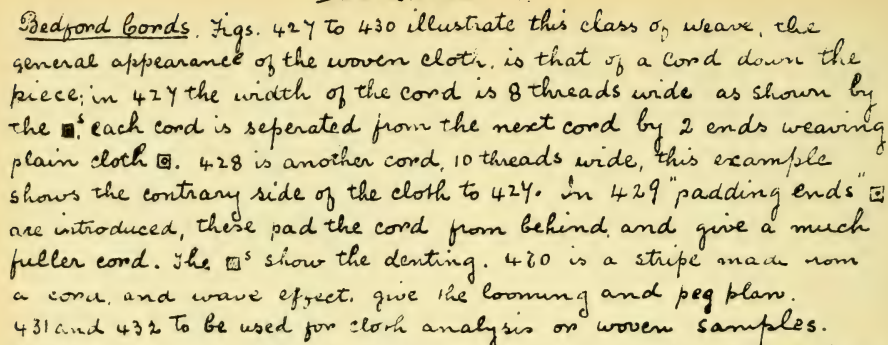 Bedford Cords. Figs. 427 to 430 illustrate this class of weave, the
general appearance of the woven cloth, is that of a cord down the
piece; in 427 the width of the cord is 8 threads wide as shown by
the ■s. each cord is seperated from the next cord by 2 ends weaving
plain cloth ⊡. 428 is another cord, 10 threads wide, this example
shows the contrary side of the cloth to 427. In 429 "padding ends" ⊡
are introduced, these pad the cord from behind, and give a much
fuller cord. The ⊡s show the denting. 430 is a stripe made from
a cord, and wave effect. give the looming and peg plan.
431 and 432 to be used for cloth analysis or woven samples.